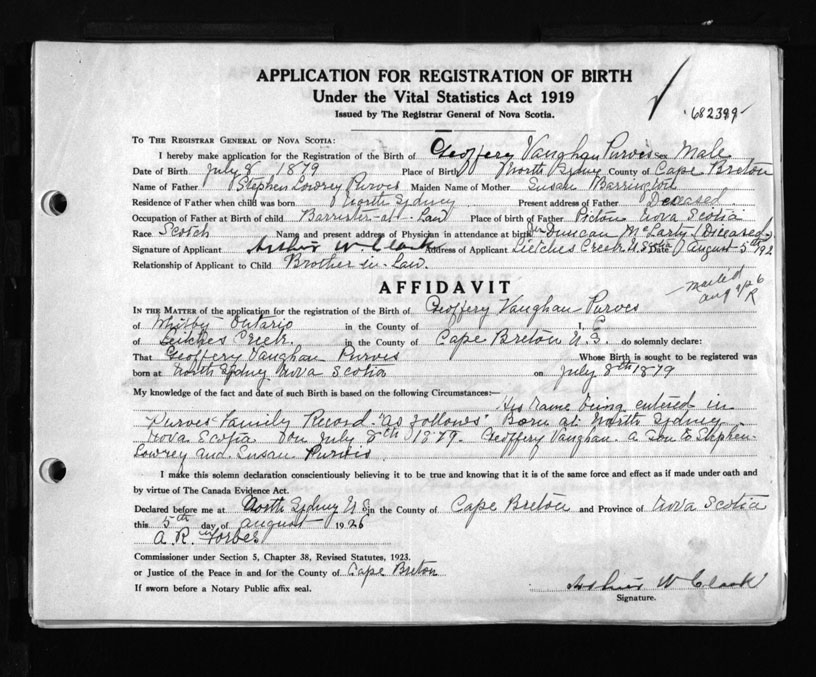 APPLICATION FOR REGISTRATION OF BIRTH
Under the Vital Statistics Act 1919
Issued by The Registrar General of Nova Scotia.
682399
To The Registrar General of Nova Scotia:
I hereby make application for the Registration of the Birth of Geoffery Vaughan Purves Sex Male
Date of Birth July 8 1879 Place of Birth North Sydney County of Cape Breton
Name of Father Stephen Lowrey Purves Maiden Name of Mother Susan Barrington
Residence of Father when child was born North Sydney Present address of Father Deceased
Occupation of Father at Birth of child Barrister-at-Law Place of birth of Father Pictou Nova Scotia
Race Scotch Name and present address of Physician in attendance at birth Dr Duncan McLarty (Diceased)
Signature of Applicant Arthur W. Clark Address of Applicant Lietches Creek N.S. Date August 5th 192
Relationship of Applicant to Child Brother-in-Law.
AFFIDAVIT
mailed
Aug 9/26
R
In the Matter of the application for the registration of the Birth of Geoffery Vaughan Purves
of Whitby Ontario in the County of I,
of Leitches Creek. in the County of Cape Breton N.S. do solemnly declare:
That Geoffery Vaughan Purves Whose Birth is sought to be registered was
born at North Sydney Nova Scotia on July 8th 1879
My knowledge of the fact and date of such Birth is based on the following Circumstances:—
His name being entered in
Purves Family Record. "As follows" Born at North Sydney
Nova Scotia on July 8th 1879. Geoffery Vaughan. a Son to Stephen
Lowrey and Susan Purves.
I make this solemn declaration conscientiously believing it to be true and knowing that it is of the same force and effect as if made under oath and
by virtue of The Canada Evidence Act.
Declared before me at North Sydney N.S. in the County of Cape Breton and Province of Nova Scotia
this 5th day of August 1926
A. R. Forbes
Commissioner under Section 5, Chapter 38, Revised Statutes, 1923.
or Justice of the Peace in and for the County of Cape Breton
If sworn before a Notary Public affix seal.
Arthur W Clark
Signature.